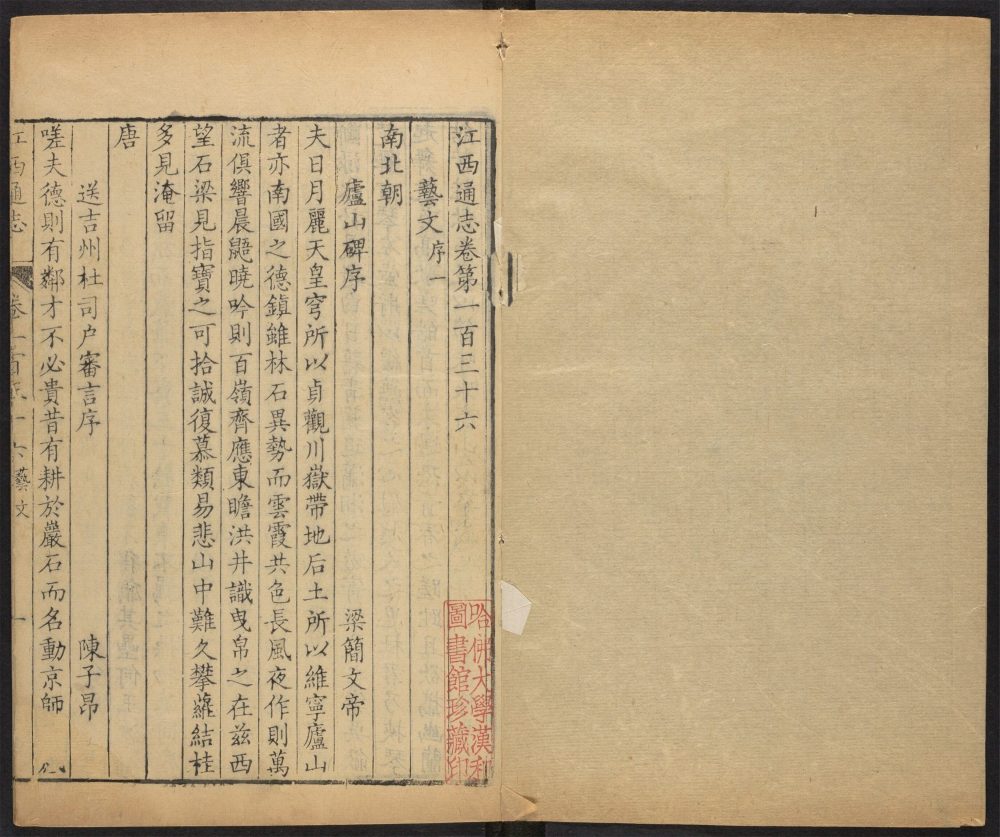 江西通志卷第一百三十六
藝文序一
南北朝
廬山碑序 梁簡文帝
夫日月麗天皇穹所以貞觀川嶽帶地后土所以維寧廬山
者亦南國之德鎮雖林石異勢而雲霞共色長風夜作則萬
流俱響晨鼯曉吟則百嶺齊應東瞻洪井識曳帛之在兹西
望石梁見指寶之可拾誠復慕類易悲山中難久攀蘿結桂
多見淹留
唐
送吉州杜司户審言序 陳子昂
嗟夫德則有鄰才不必貴昔有耕於巖石而名動京師
江西通志 卷一百三十六藝文 一
哈佛大學漢和
圖書館珍藏印